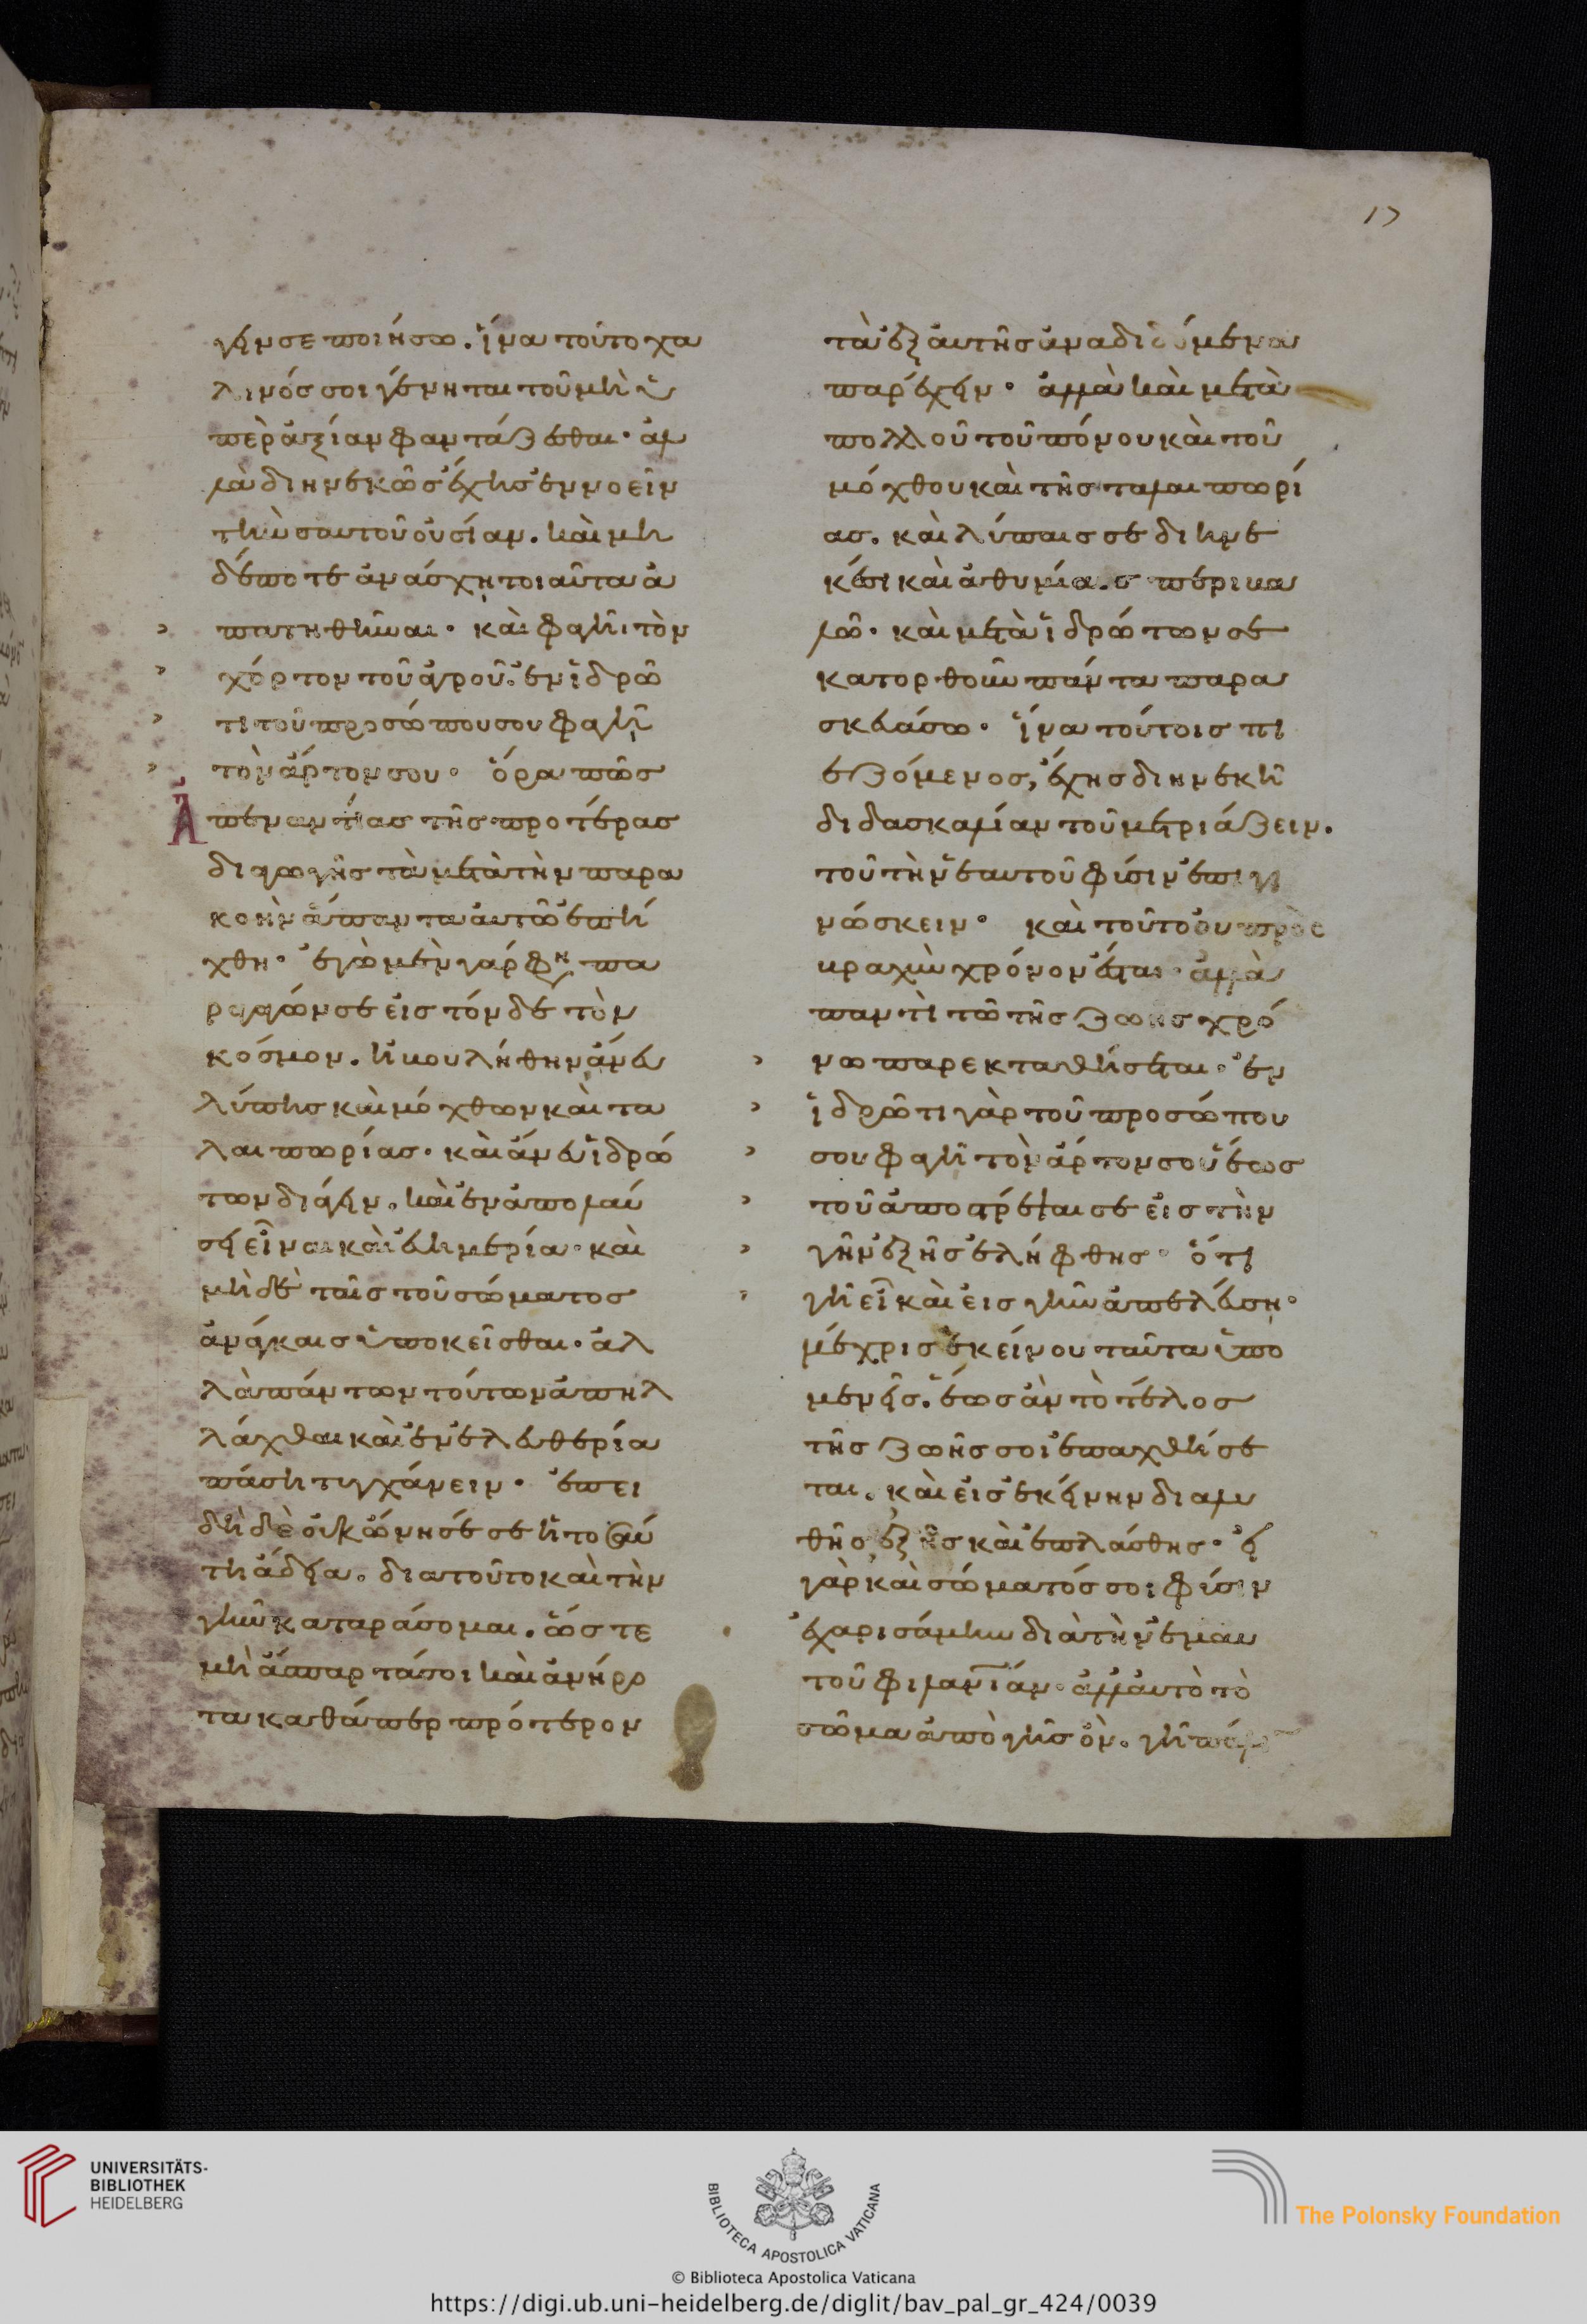 17
γεῖν σε ποιήσω. ἵνα τοῦτο χα
λινός σοι γένηται τοῦ μὴ ὑ
πὲρ ἀξίαν φαντάζεσθαι· ἀλ
λὰ διηνεκῶς ἔχῃς ἐννοεῖν
τὴν σαυτοῦ οὐσίαν. καὶ μη
δέποτε ἀνάσχῃ τοιαῦτα ἀ
πατηθῆναι· καὶ φαγῆ τὸν
χόρτον τοῦ ἀγροῦ. ἐν ἱδρῶ
τι τοῦ προσώπου σου φαγῆ
τὸν ἄρτον σου· ὅρα πῶς
ἀπεναντίας τῆς προτέρας
διαγωγῆς τὰ μετὰ τὴν παρα
κοὴν ἅπαντα αὐτῶ ἐπή
χθη· ἐγὼ μὲν γάρ φη πα
ραγαγών σε εἰς τόνδε τὸν
κόσμον. ἠβουλήθην ἄνευ
λύπης καὶ μόχθων καὶ τα
λαιπωρίας· καὶ ἄνευ ἱδρώ
των διάγειν. καὶ ἐν ἀπολαύ
σει εἶναι καὶ εὐημερία· καὶ
μὴ δὲ ταῖς τοῦ σώματος
ἀνάγκαις ὑποκεῖσθαι· ἀλ
λὰ πάντων τούτων ἀπηλ
λάχθαι καὶ ἐν ἐλευθερία
πάση τυγχάνειν· ἐπει
δὴ δὲ οὐκ ὤνησέ σε ἡ τοσαύ
τη ἄδεια. δια τοῦτο καὶ τὴν
γῆν καταράσομαι. ὥστε
μὴ ἄσπαρτά σοι καὶ ἀνήρο
τα καθάπερ πρότερον
τὰ ἐξ αὐτῆς ἀναδιδόμενα
παρέχειν· ἀλλὰ καὶ μετὰ
πολλοῦ τοῦ πόνου καὶ τοῦ
μόχθου καὶ τῆς ταλαιπωρί
ας. καὶ λύπαις σε διηνε
κέσι καὶ ἀθυμίαις περιβα
λῶ· καὶ μετὰ ἱδρώτων σε
κατορθοῦν πάντα παρα
σκευάσω· ἵνα τούτοις πι
εζόμενος, ἔχης διηνεκῆ
διδασκαλίαν τοῦ μετριάζειν.
τοῦ τὴν ἑαυτοῦ φύσιν ἐπιγι
νώσκειν· καὶ τοῦτο οὐ πρὸς
βραχὺν χρόνον ἔσται· ἀλλὰ
παντὶ τῶ τῆς ζωῆς χρό
νω παρεκταθήσεται· ἐν
ἱδρῶτι γὰρ τοῦ προσώπου
σου φαγῆ τὸν ἄρτον σου ἕως
τοῦ ἀποστρέψαι σε εἰς τὴν
γῆν ἐξ ἧς ἐλήφθης· ὅτι
γῆ εἶ καὶ εἰς γῆν ἀπελεύση·
μέχρις ἐκείνου ταῦτα ὑπο
μενεῖς. ἕως ἂν τὸ τέλος
τῆς ζωῆς σοι ἐπαχθήσε
ται. καὶ εἰς ἐκείνην διαλυ
θῆς ἐξ ἧς καὶ ἐπλάσθης· εἰ
γὰρ καὶ σώματός σοι φύσιν
ἐχαρισάμην διὰ τὴν ἐμαυ
τοῦ φιλανίαν· ἀλλ' αὐτὸ τὸ
σῶμα ἀπὸ γῆς ὂν. γῆ πάλιν
UNIVERSITÄTS-
BIBLIOTHEK
HEIDELBERG
BIBLIOTECA APOSTOLICA VATICANA
The Polonsky Foundation
© Biblioteca Apostolica Vaticana
https://digi.ub.uni-heidelberg.de/diglit/bav_pal_gr_424/0039